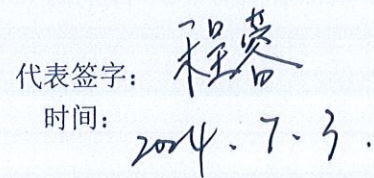 代表签字：程蓉
时间：2024.7.3.